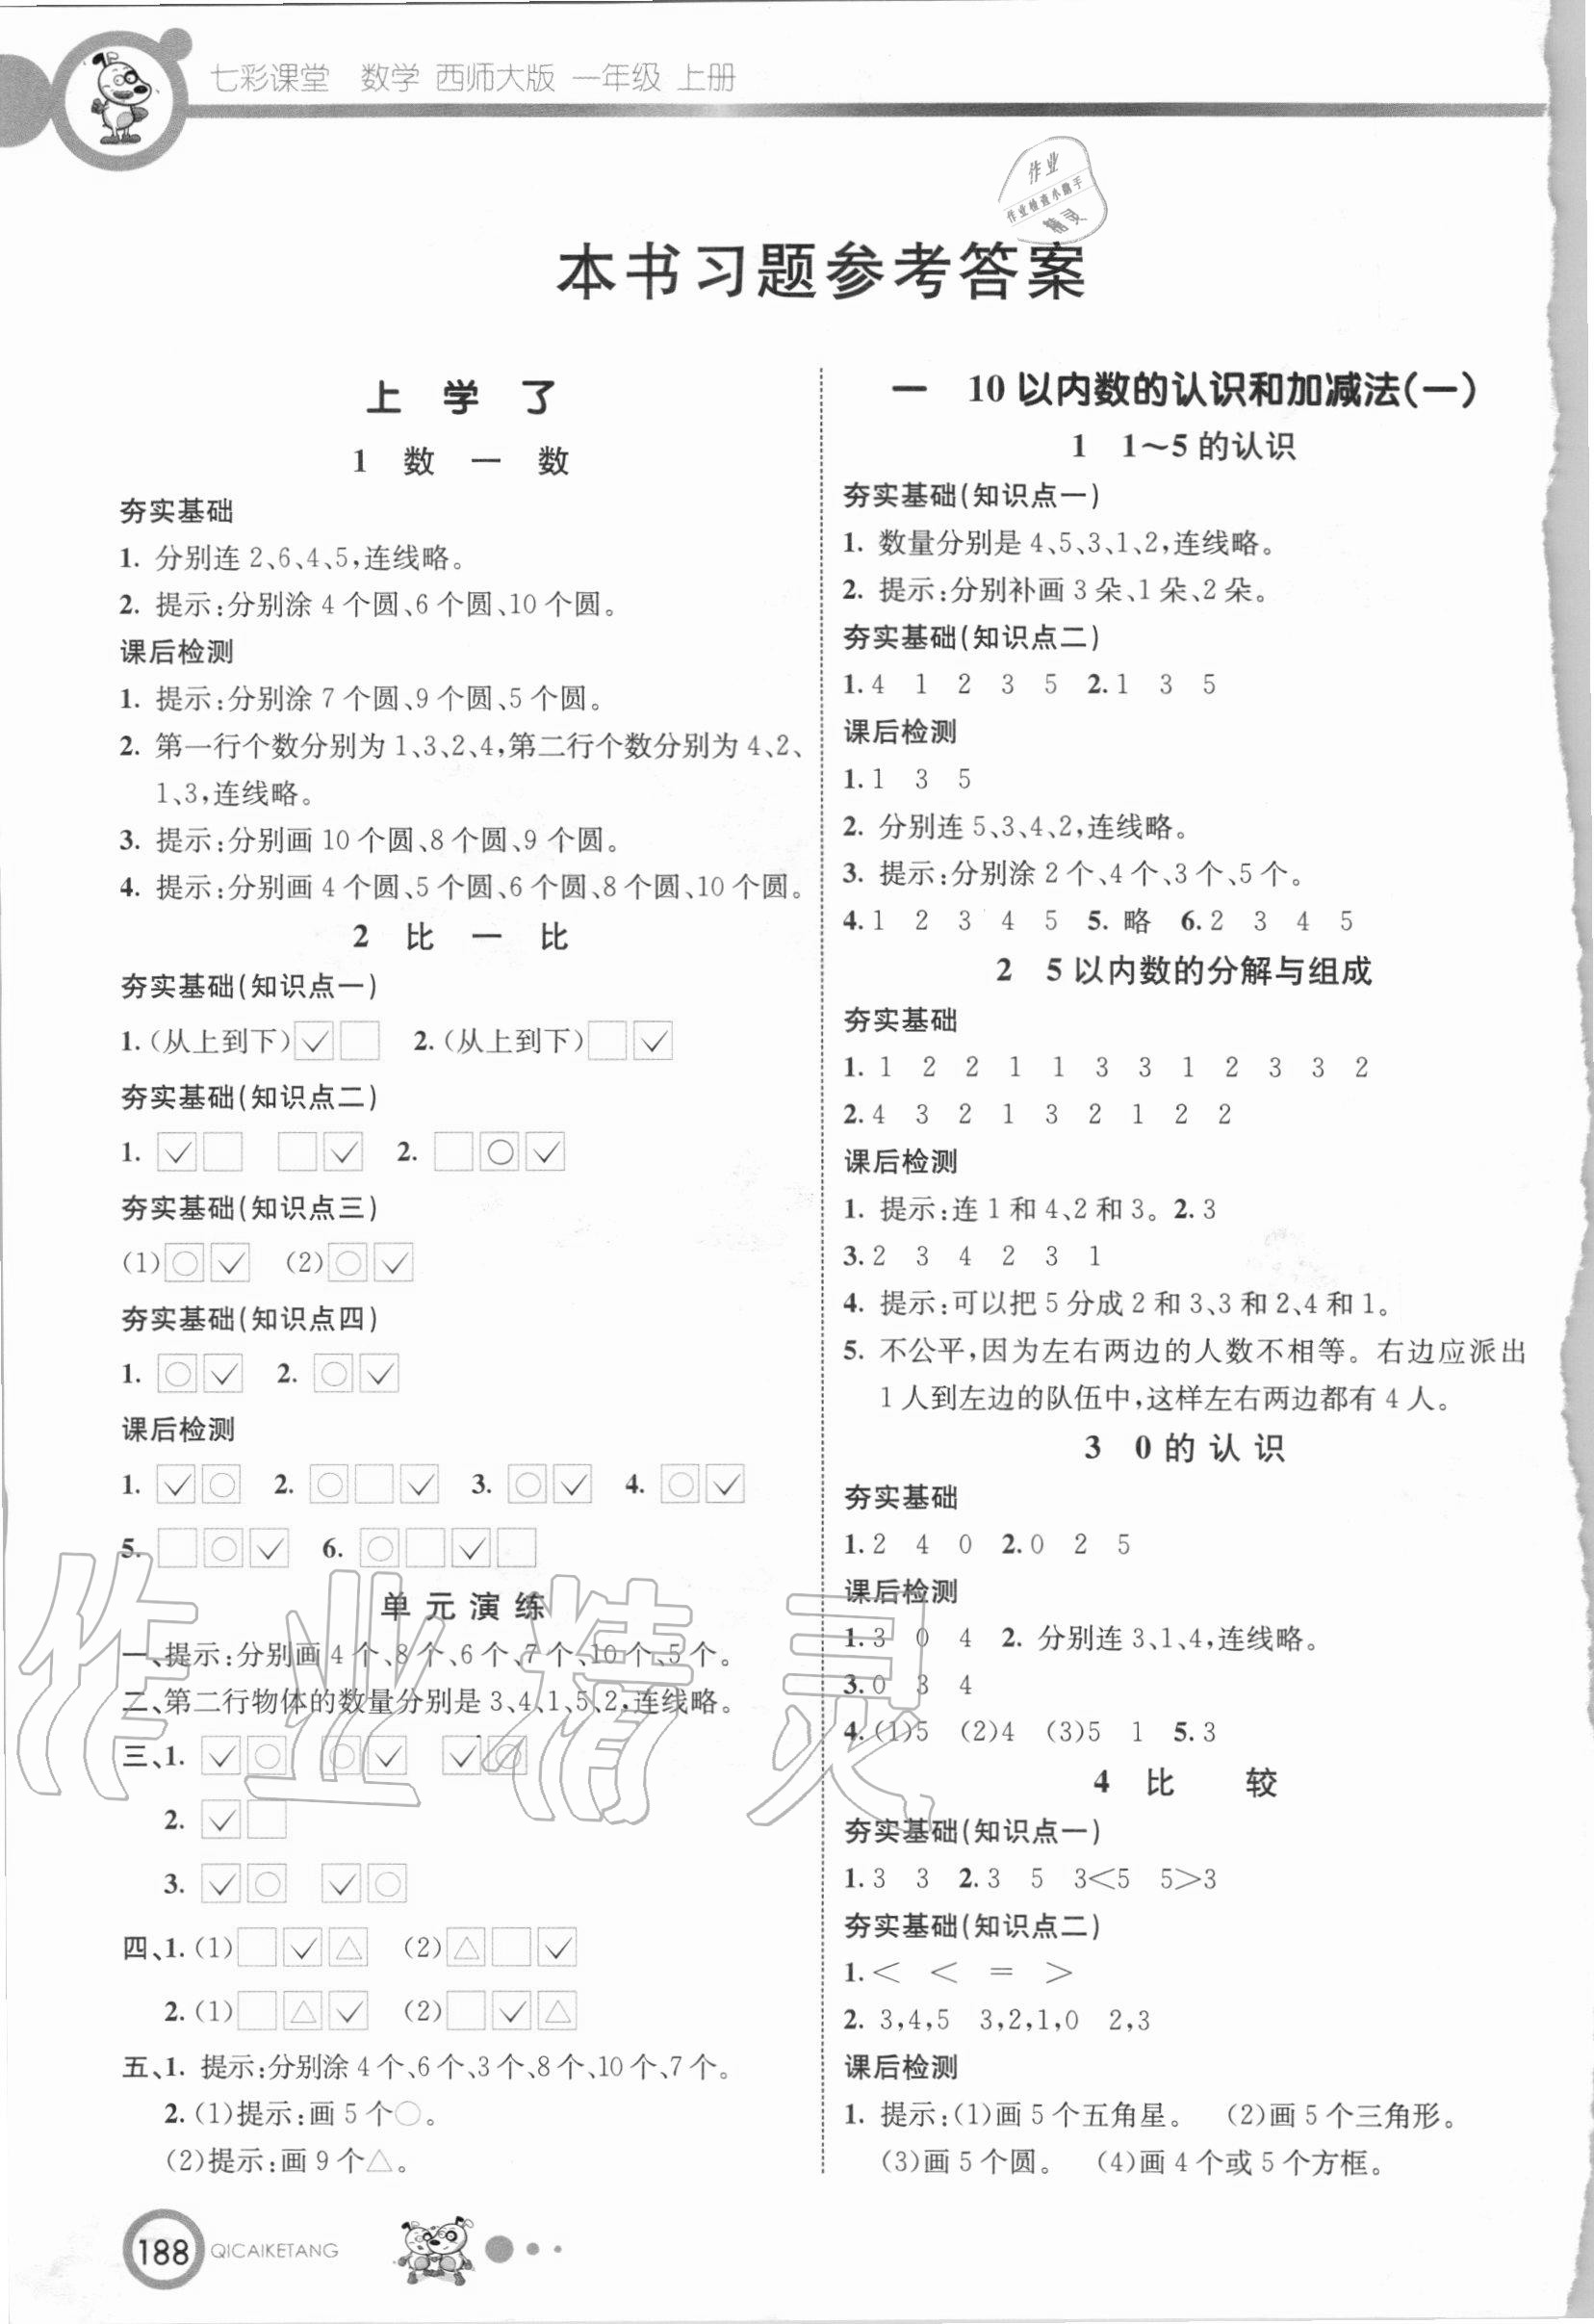 七彩课堂 数学 西师大版 一年级 上册
作业
作业检查小助手
精灵
本书习题参考答案
上 学 了
1 数 一 数
夯实基础
1. 分别连 2、6、4、5,连线略。
2. 提示:分别涂 4 个圆、6 个圆、10 个圆。
课后检测
1. 提示:分别涂 7 个圆、9 个圆、5 个圆。
2. 第一行个数分别为 1、3、2、4,第二行个数分别为 4、2、
1、3,连线略。
3. 提示:分别画 10 个圆、8 个圆、9 个圆。
4. 提示:分别画 4 个圆、5 个圆、6 个圆、8 个圆、10 个圆。
2 比 一 比
夯实基础(知识点一)
1.(从上到下)☑□ 2.(从上到下)□☑
夯实基础(知识点二)
1. ✓□ □✓ 2. □○✓
夯实基础(知识点三)
(1)○✓ (2)○✓
夯实基础(知识点四)
1. ○✓ 2. ○✓
课后检测
1. ✓○ 2. ○□✓ 3. ○✓ 4. ○✓
5. □○✓ 6. ○□✓□
单 元 演 练
一、提示:分别画 4 个、8 个、6 个、7 个、10 个、5 个。
二、第二行物体的数量分别是 3、4、1、5、2,连线略。
三、1. ✓○ ○✓ ✓○
2. ✓□
3. ✓○ ✓○
四、1.(1)□✓△ (2)△□✓
2.(1)□△✓ (2)□✓△
五、1. 提示:分别涂 4 个、6 个、3 个、8 个、10 个、7 个。
2.(1)提示:画 5 个○。
(2)提示:画 9 个△。
一 10 以内数的认识和加减法(一)
1 1~5 的认识
夯实基础(知识点一)
1. 数量分别是 4、5、3、1、2,连线略。
2. 提示:分别补画 3 朵、1 朵、2 朵。
夯实基础(知识点二)
1.4 1 2 3 5 2.1 3 5
课后检测
1.1 3 5
2. 分别连 5、3、4、2,连线略。
3. 提示:分别涂 2 个、4 个、3 个、5 个。
4.1 2 3 4 5 5. 略 6.2 3 4 5
2 5 以内数的分解与组成
夯实基础
1. 1 2 2 1 1 3 3 1 2 3 3 2
2.4 3 2 1 3 2 1 2 2
课后检测
1. 提示:连 1 和 4、2 和 3。 2.3
3.2 3 4 2 3 1
4. 提示:可以把 5 分成 2 和 3、3 和 2、4 和 1。
5. 不公平,因为左右两边的人数不相等。右边应派出
1 人到左边的队伍中,这样左右两边都有 4 人。
3 0 的 认 识
夯实基础
1.2 4 0 2.0 2 5
课后检测
1.3 0 4 2. 分别连 3、1、4,连线略。
3.0 3 4
4.(1)5 (2)4 (3)5 1 5.3
4 比 较
夯实基础(知识点一)
1.3 3 2.3 5 3<5 5>3
夯实基础(知识点二)
1.< < = >
2. 3,4,5 3,2,1,0 2,3
课后检测
1. 提示:(1)画 5 个五角星。 (2)画 5 个三角形。
(3)画 5 个圆。 (4)画 4 个或 5 个方框。
作业精灵
188 QICAIKETANG